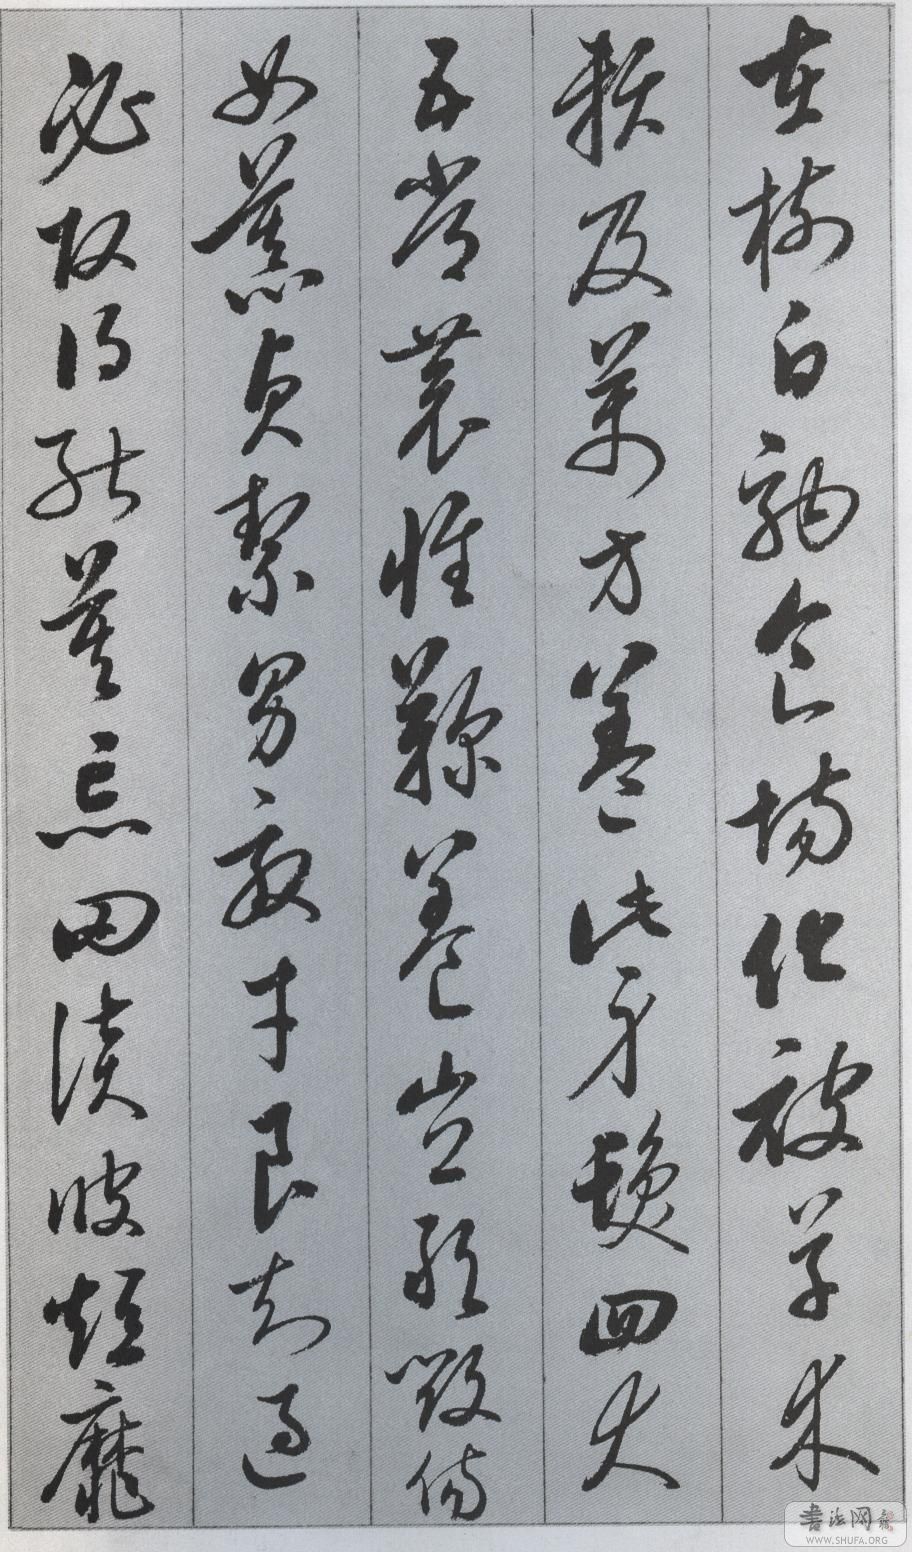 在樹白駒食場化被草木
賴及萬方蓋此身髮四大
五常恭惟鞠養豈敢毀傷
女慕貞絜男效才良知過
必改得能莫忘罔談彼短靡
書法网
WWW.SHUFA.ORG